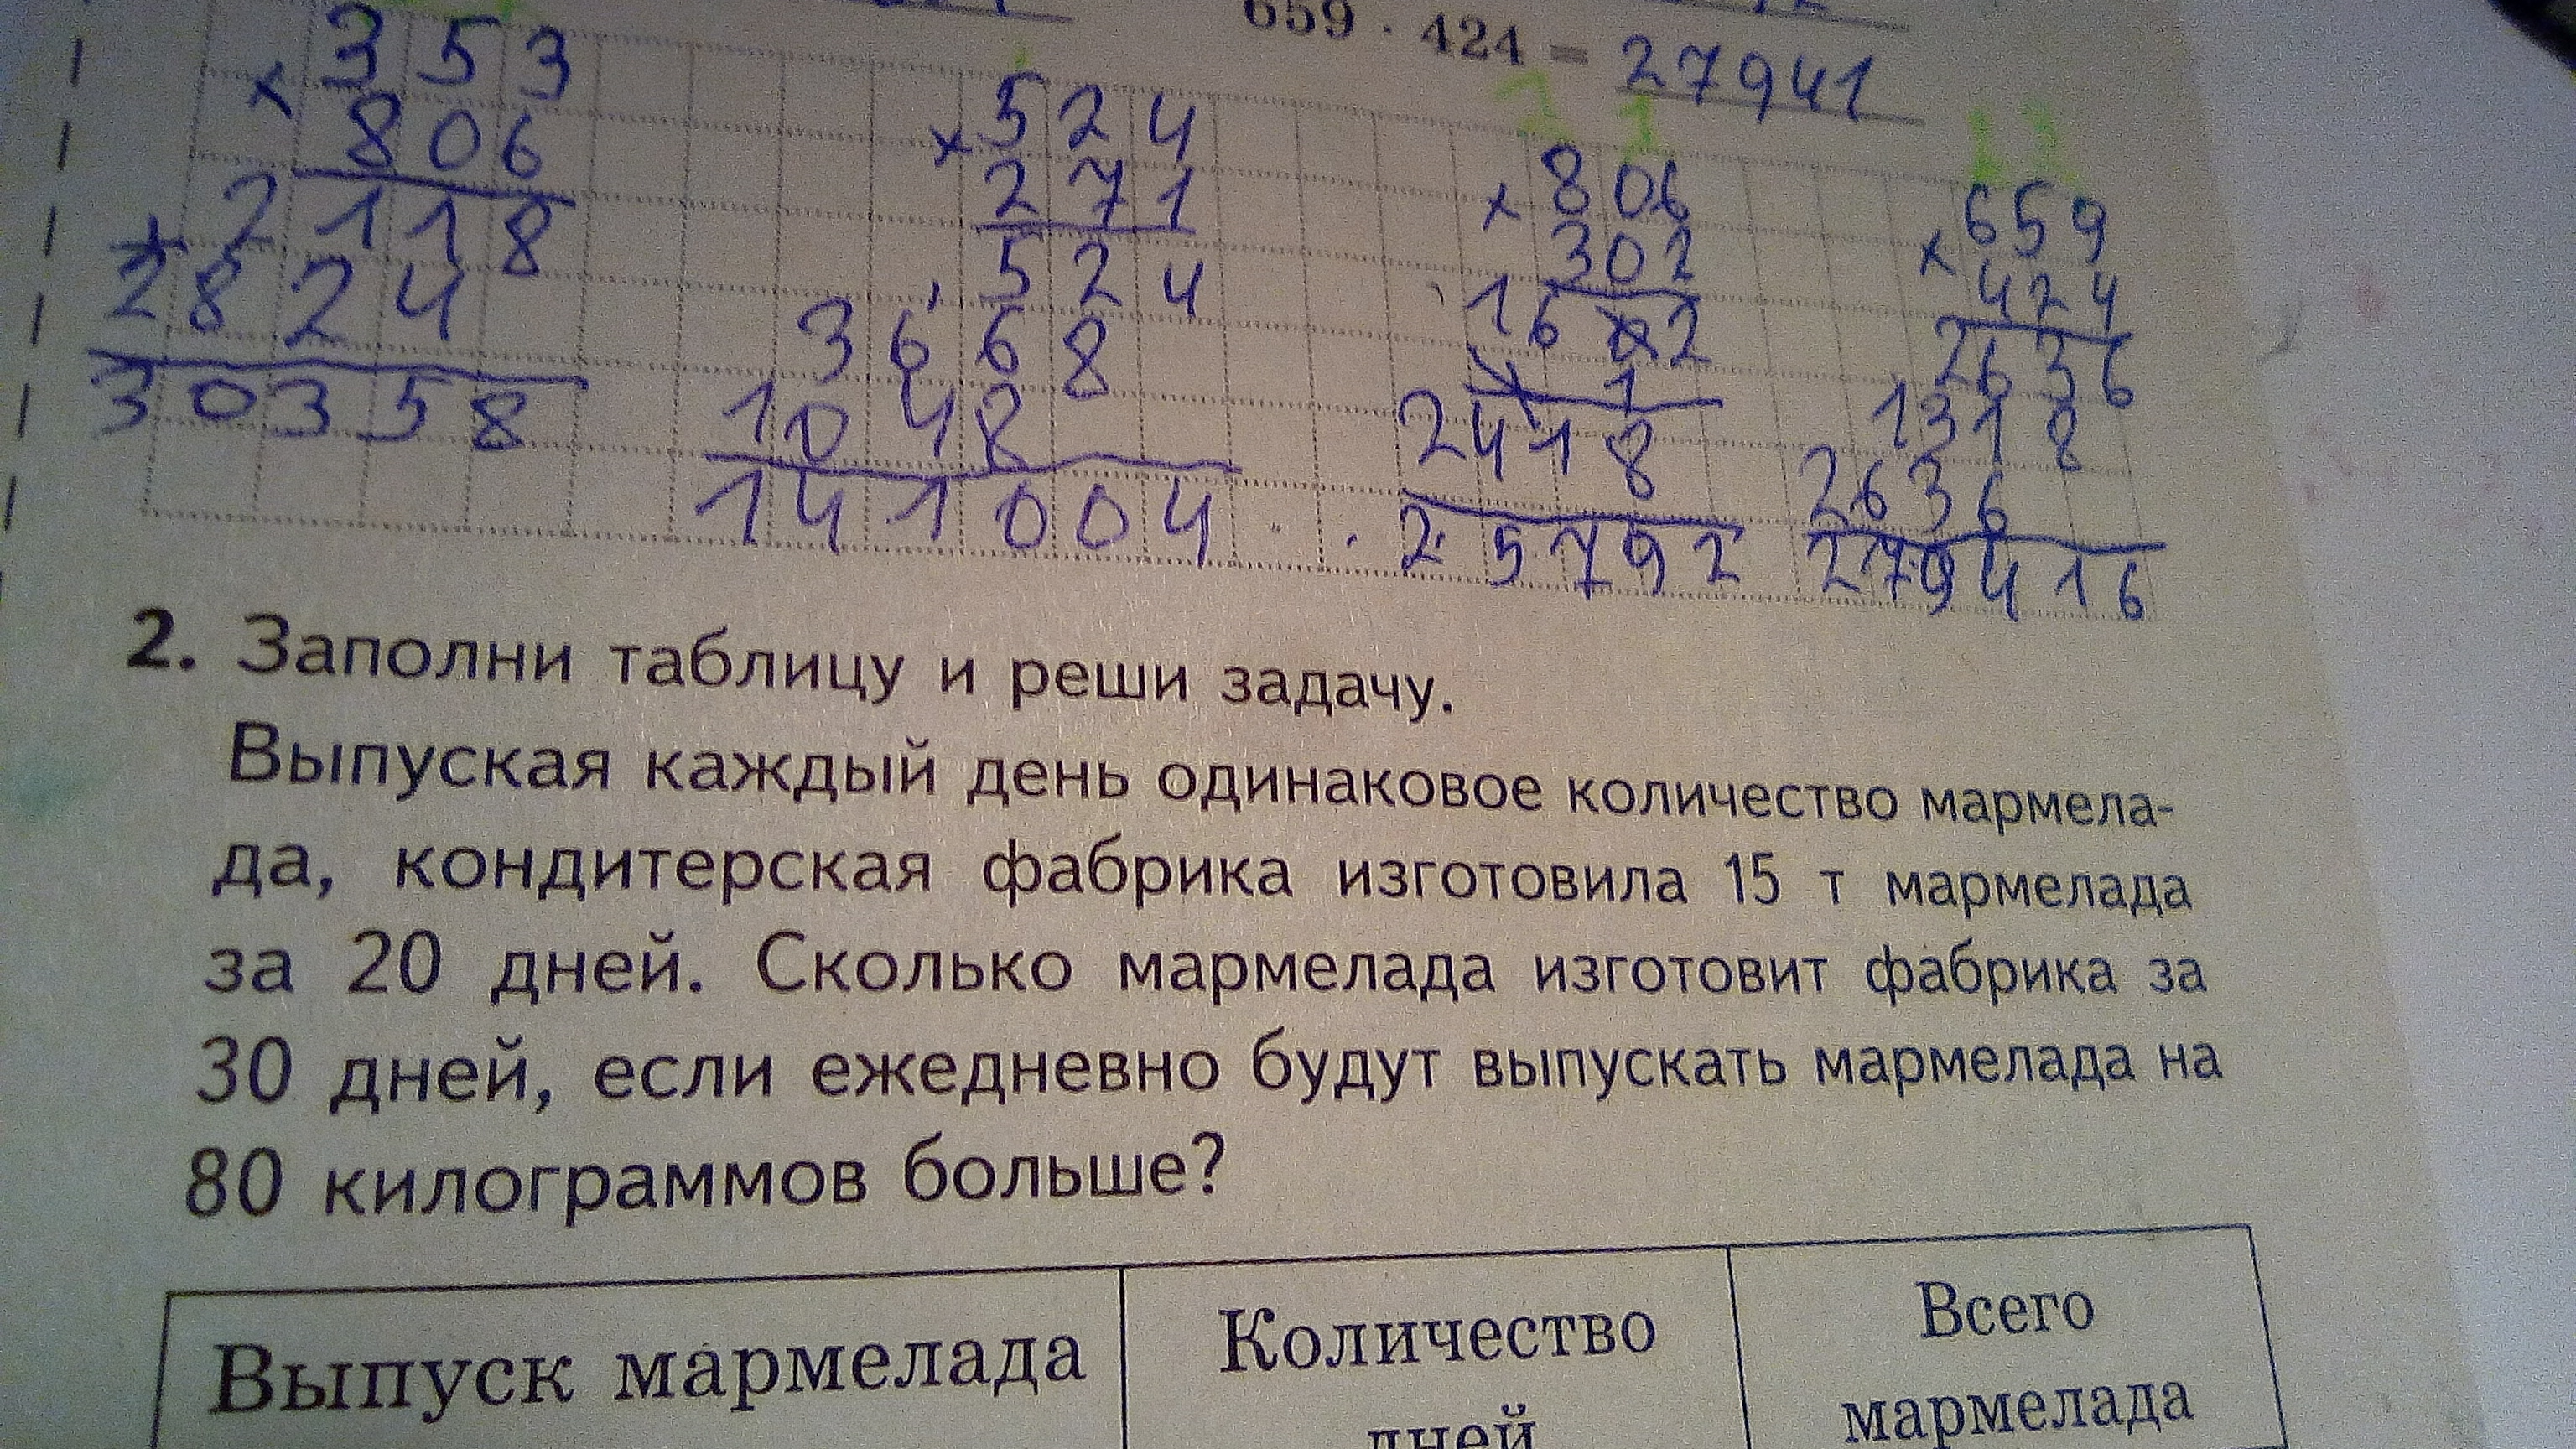 659 · 424 = 27941
353
× 806
2118
+ 2824
30358
524
× 271
524
3668
1048
141004
806
× 302
16 2
1
2418
25792
659
× 424
2636
1318
2636
279416
2. Заполни таблицу и реши задачу.
Выпуская каждый день одинаковое количество мармела-
да, кондитерская фабрика изготовила 15 т мармелада
за 20 дней. Сколько мармелада изготовит фабрика за
30 дней, если ежедневно будут выпускать мармелада на
80 килограммов больше?
Выпуск мармелада
Количество
дней
Всего
мармелада